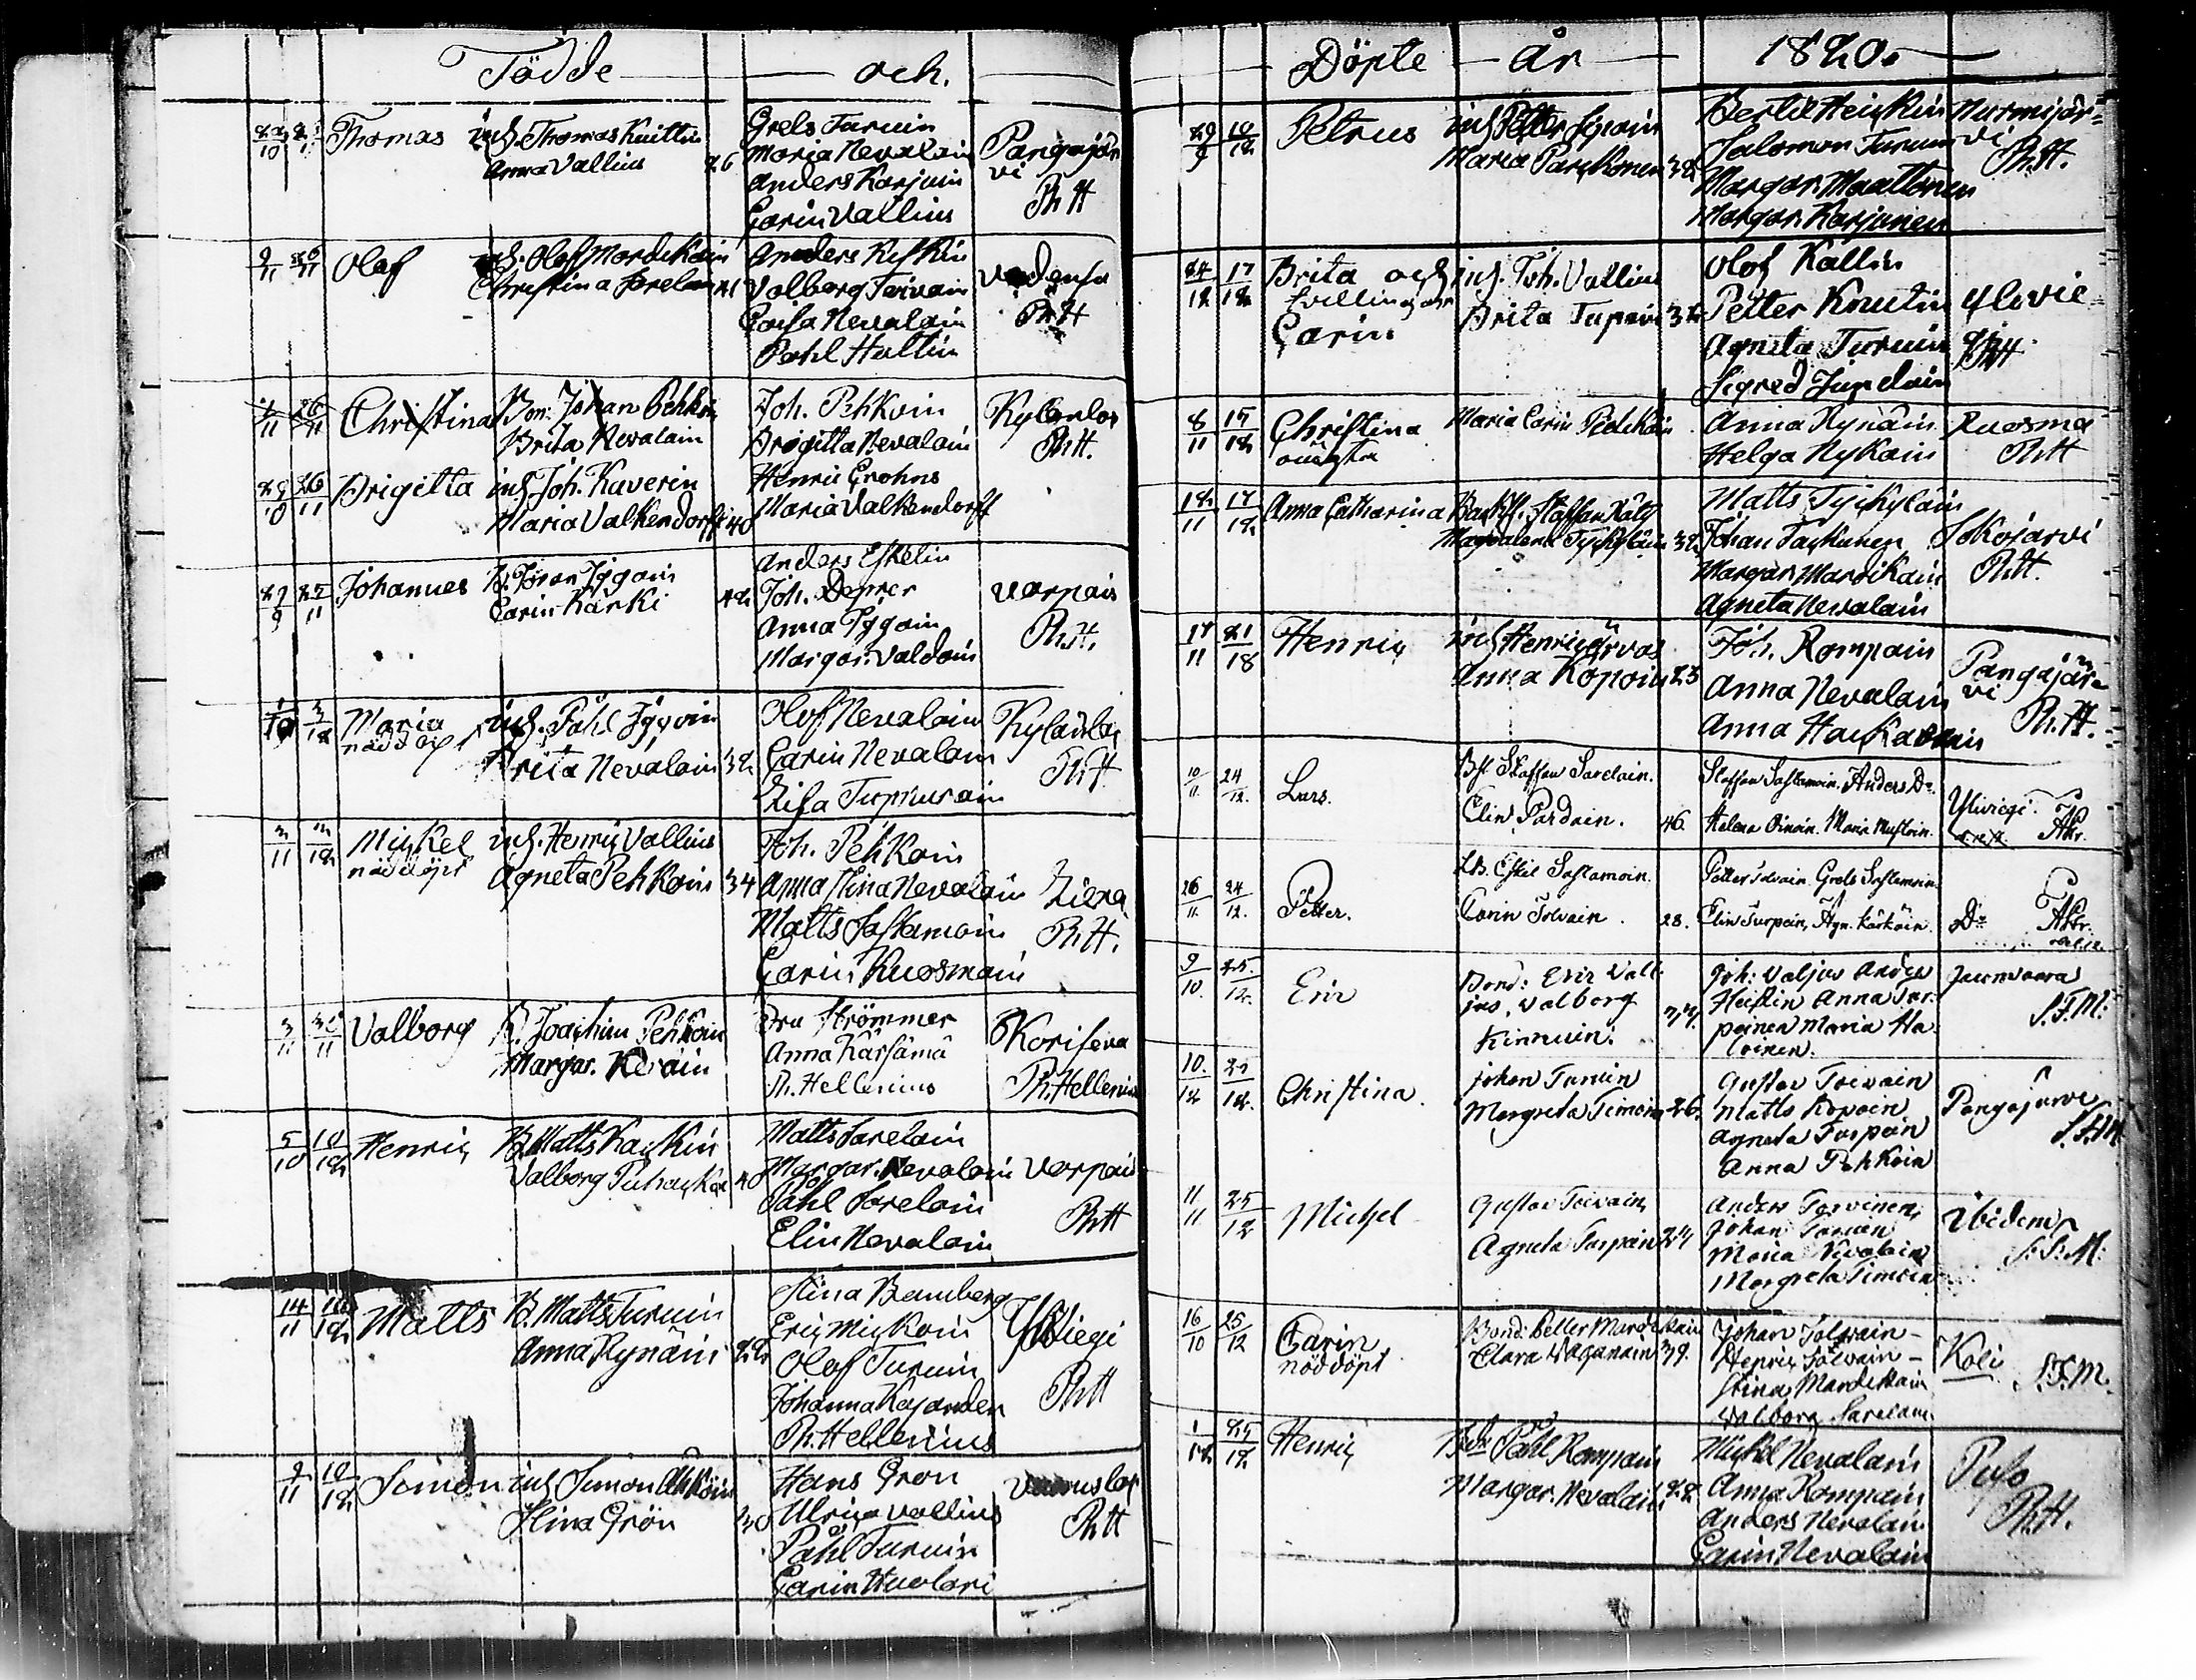 Födde och
Thomas inh. Thomas Kuittin
Anna Vallius 26
Grels Turuin
Maria Nevalain
Anders Karjain
Carin Vallius
Pangajär
vi
Ph H
Olaf inh. Olof Mardikain
Christina Sorelain 21
Anders
Valborg Toivain
Caisa Nevalain
Påhl Hultin
Ph H
Christina Bon: Johan Pehkoin
Brita Nevalain
Joh. Pehkoin
Brigitta Nevalain
Kylänlax
Ph H.
29/10 26/11 Brigitta inh Joh. Kaverin
Maria Valkendorff 40
Henric Crohns
Maria Valkendorff
27/9 25/11 Johannes B. Göran
Carin Kärki 42
Anders Eskelin
Joh. Deprer
Anna
Margar. Valdain
Varpais
Ph. H.
Maria inh. Påhl
nöddöpt Brita Nevalain 32
Olof Nevalain
Carin Nevalain
Lisa Turpurain
Kyländlax
Ph H
3/11 3/12 Michel inh. Henric Vallius
nöddöpt Agneta Pehkoin 34
Joh. Pehkoin
Anna Stina Nevalain
Matts Sastamoin
Carin Kuosmain
Liexa
Ph H.
Valborg B. Joachim Pehkoin
Margar. Kerain
Fru Strömmer
Anna Kärsämä
Ph. Hellenius
Koriseva
Ph. Hellenius
5/10 10/12 Henric B. Matts Kackin
Valborg Puhackka 40
Matts Sarelain
Margar. Nevalain
Påhl Sorelain
Elin Nevalain
Varpais
Ph H
14/11 10/12 Matts B. Matts Turuin
Anna Rynäin 22
Stina Bamberg
Eric Mickoin
Olof Turuin
Johanna Kajander
Ph. Hellenius
Yliviegi
Ph H
9/11 10/12 Simon inh Simon
Stina Grön 30
Hans Gron
Ulrica Vallius
Påhl Turuin
Carin Huolari
Ph H
Döpte år 1820.
29/9 10/12 Petrus inh Petter
Maria Parckonen 32
Bertil Heickin
Salomon Turuun
Margar. Maattonen
Margar. Karjunen
Nurmijär=
vi
Ph. H.
24/12 17/12 Brita och inh. Joh. Vallius
tvillingar
Carin Brita Turpein 32
Olof Kallin
Petter Knutin
Agneta Turuin
Sigred
Ylivie=
gi
Ph H
8/11 17/12 Christina Maria Carin Pedikäin
oäckta
Anna Rynäin
Helga Nykain
Kuosma
Ph H
12/11 17/12 Anna Catharina Backst. Staffan Räty
Magdalena Tyckyläin 32
Matts Tyckyläin
Johan Tackunen
Margar. Mardikain
Agneta Nevalain
Jokojärvi
Ph H.
17/11 21/12 Henric inh Henric Ärväs
Anna Kopoin 23
Joh. Rompain
Anna Nevalain
Anna Hackarain
Pangajär=
vi
Ph. H.
10/11 24/12 Lars. Bst Staffan Sarelain.
Elin Pardain. 46.
Staffan Sastamoin. Anders Do
Helena Oinoin. Maria Mustoin.
Yliviegi.
26/11 24/12 Petter. Lb. Eskil Sastamoin.
Carin Tolvain. 28.
Petter Tolvain. Grels Sastamoin.
Elin Turpain, Agn. Kärkäin.
Do
9/10 25/12 Eric Bond: Eric Vall
jus, Valborg
Kinnuin.
Joh: Valjus Anders
Heiskin Anna Tur
poinen Maria Ha
loinen.
Juunvaara
S.F.M:
10/12 25/12 Christina. Johan Turuin
Margreta Timoin 26.
Gustav Toivain
Matts Kopoin
Agneta Turpein
Anna Pehkoin
Pangajärvi
S.F.M
11/11 25/12 Michel Gustav Toivain
Agneta Turpein 24
Anders Torvinen
Johan Turuin
Maria Nevalain
Margreta Timoin
Ibidem
S.F.M:
16/10 25/12 Carin Bond: Petter Mardikain
nöddöpt Clara Väyänäin 39.
Johan Jolvain -
Henric Jolvain -
Stina Mardikain
Valborg Sarelain
Koli S.F.M.
1/12 25/12 Henric Bde Påhl Rompain
Margar. Nevalain 22
Michel Nevalain
Anna Rompain
Anders Nevalain
Carin Nevalain
Puso
Ph. H.